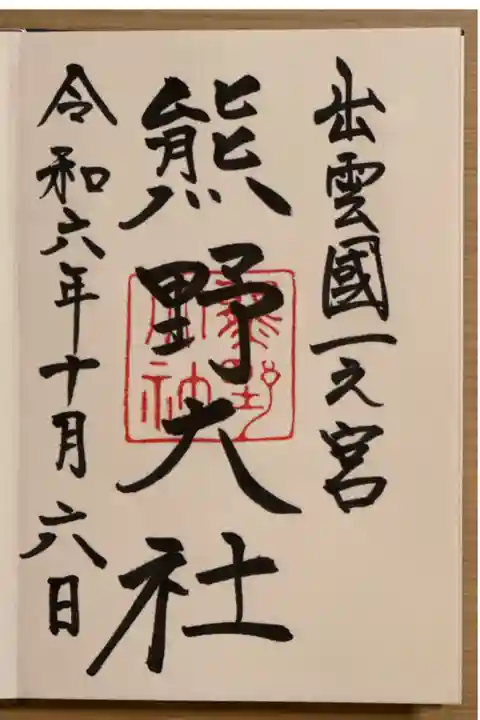 出雲國一之宮
熊野大社
令和六年十月六日